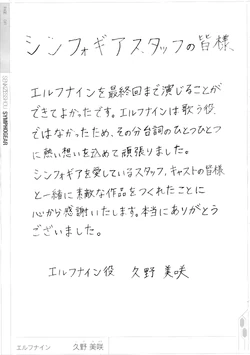 シンフォギアスタッフの皆様
エルフナインを最終回まで演じることが
できてよかったです。エルフナインは歌う役
ではなかったため、その分台詞のひとつひとつ
に熱い想いを込めて頑張りました。
シンフォギアを愛しているスタッフ、キャストの皆様
と一緒に素敵な作品をつくれたことに
心から感謝いたします。本当にありがとう
ございました。
エルフナイン役 久野 美咲
SENKI ZESSHO SYMPHOGEAR
エルフナイン 久野 美咲